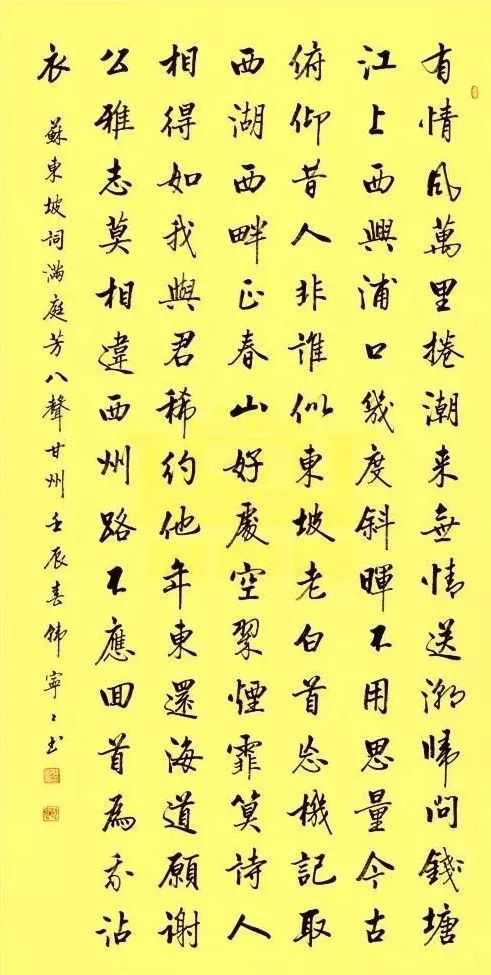 有情風萬里捲潮来無情送潮歸問錢塘
江上西興浦口幾度斜暉不用思量今古
俯仰昔人非誰似東坡老白首忘機記取
西湖西畔正春山好處空翠煙霏算詩人
相得如我與君稀約他年東還海道願謝
公雅志莫相違西州路不應回首為我沾
衣
蘇東坡詞滿庭芳八聲甘州 壬辰春 韩寧〻书